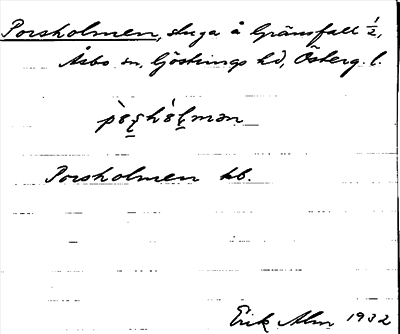 Porsholmen, stuga å Gränsfall ½,
Åsbo sn, Göstrings hd, Österg. l.
Porsholmen hb.
Erik Alm 1932